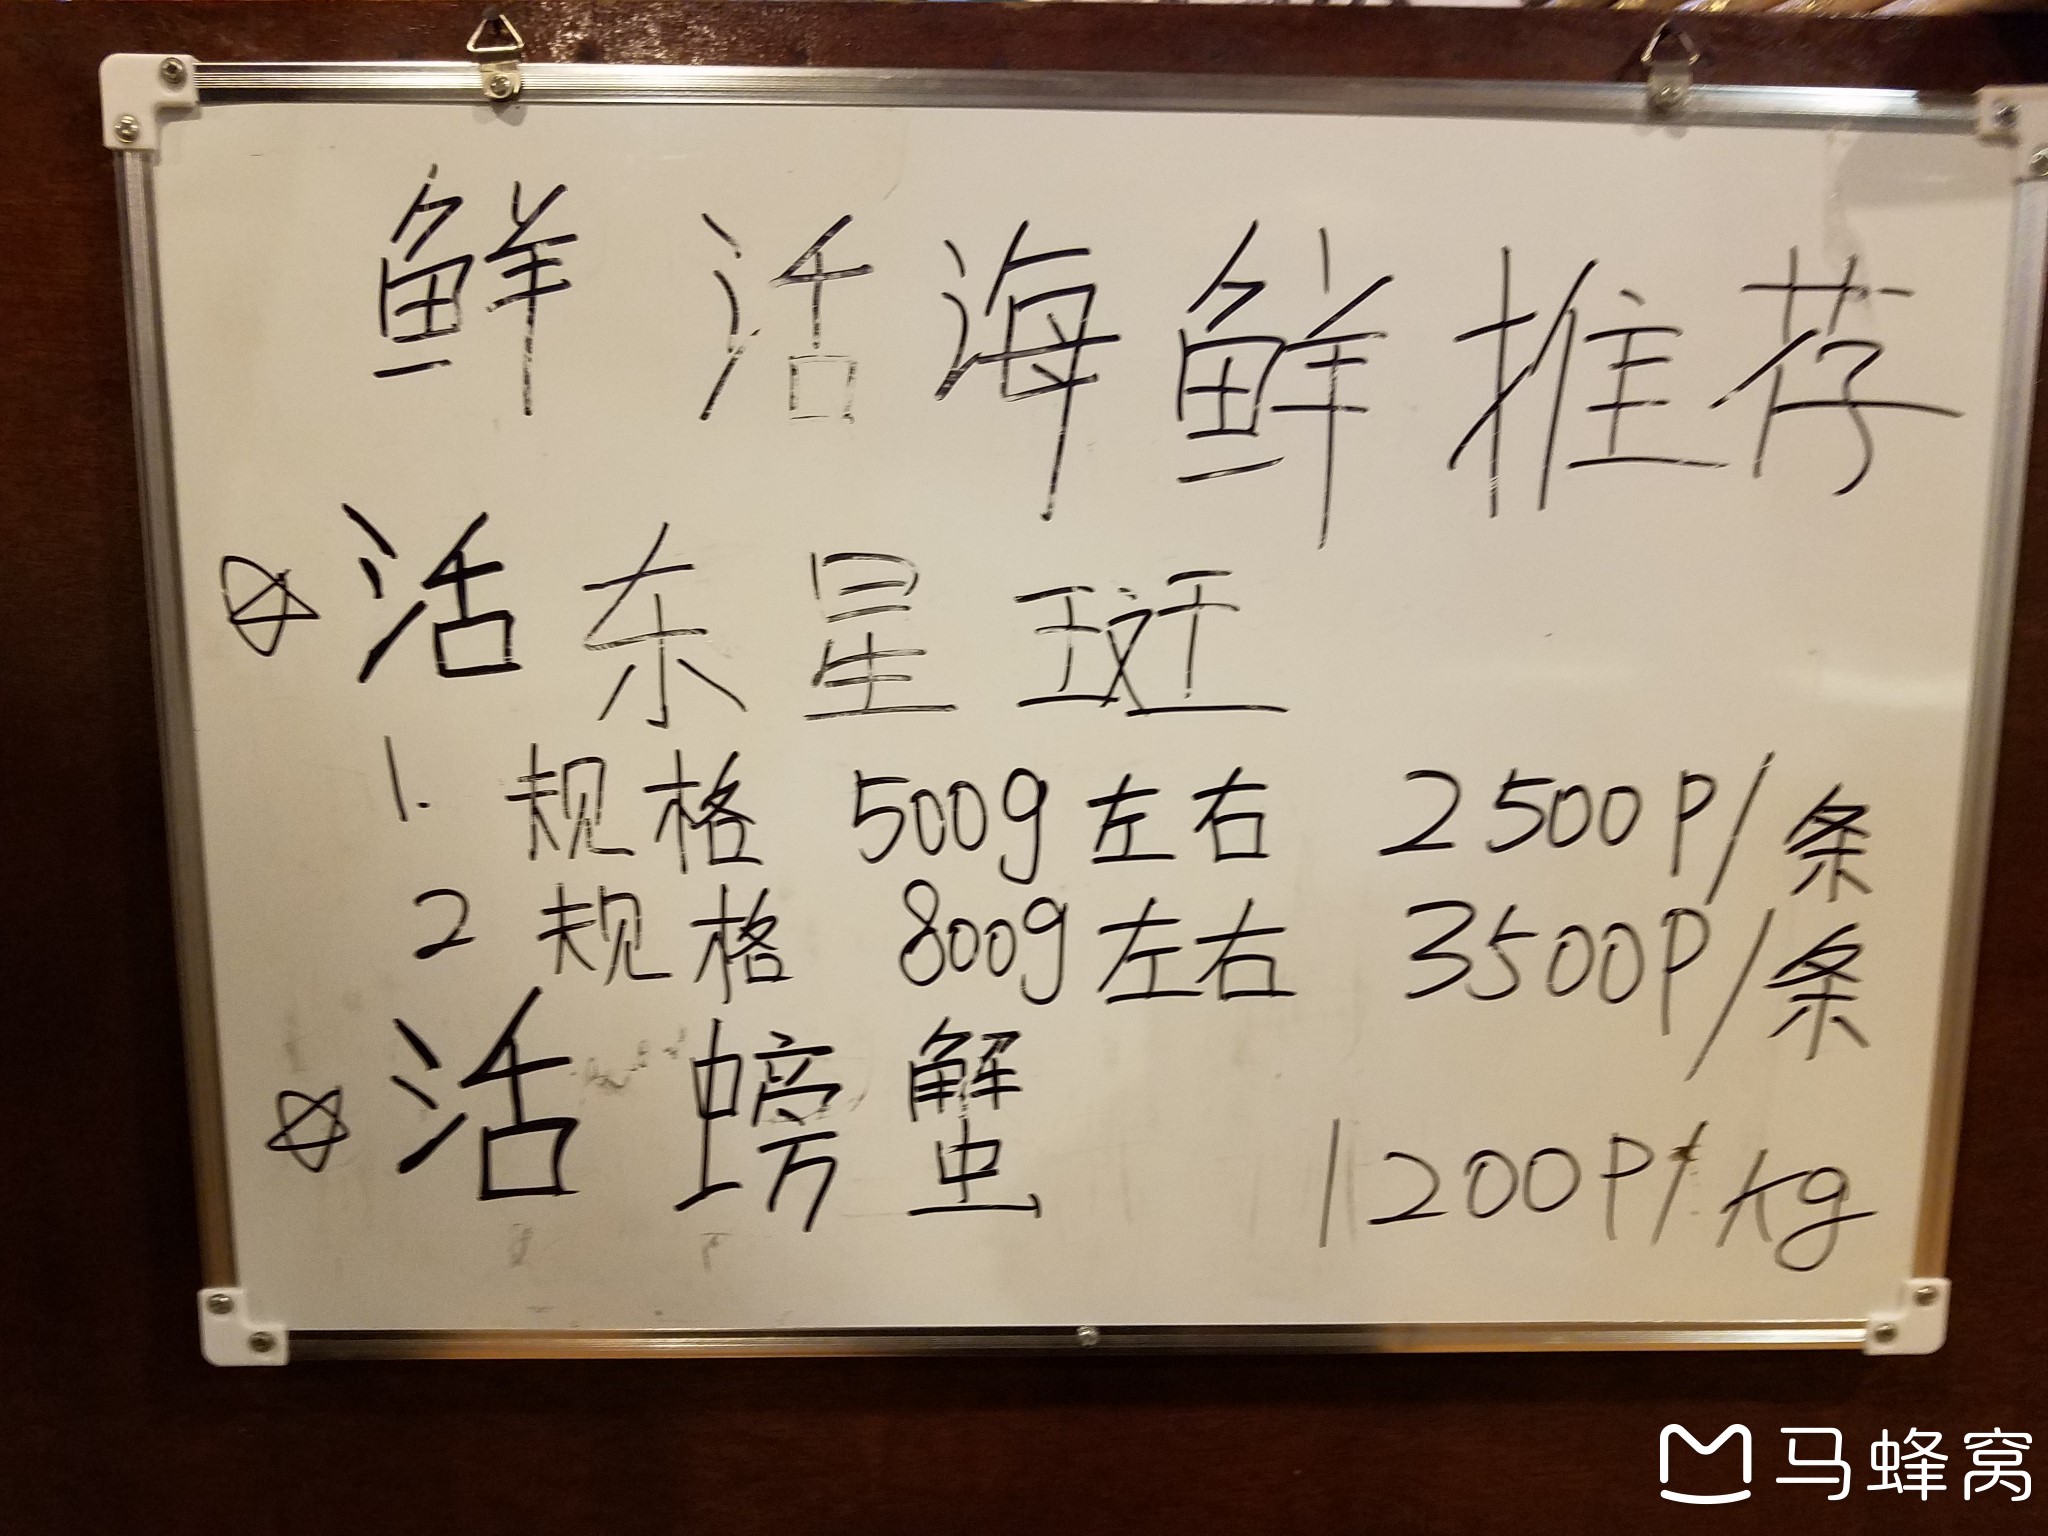 鲜活海鲜推荐
☆活东星斑
1. 规格 500g左右 2500P/条
2 规格 800g左右 3500P/条
☆活螃蟹 1200P/kg
马蜂窝